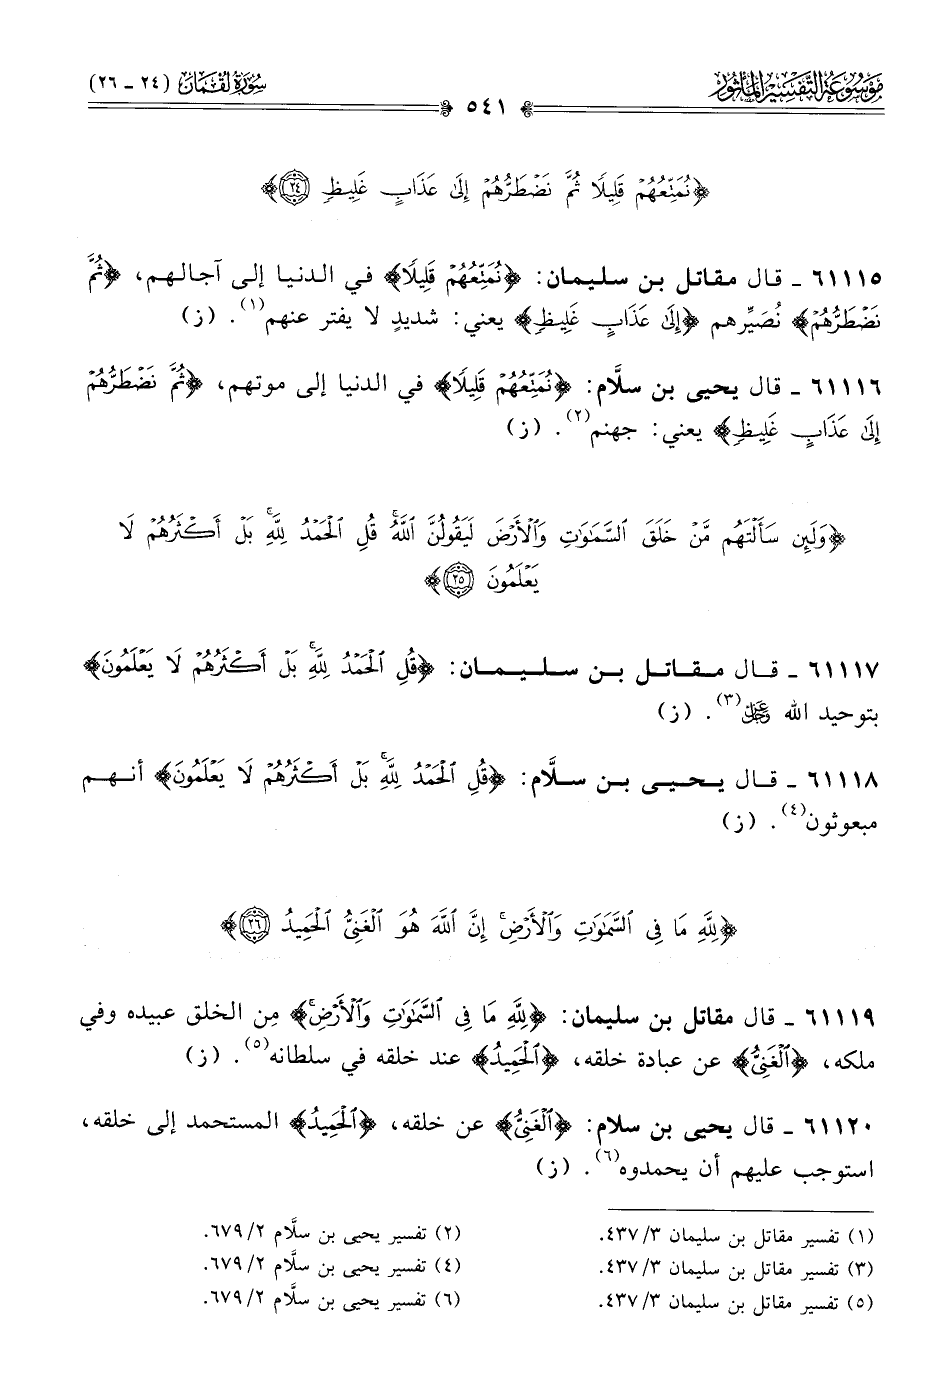 مَوْسُوعَة التَّفْسِيرُ المَأْثُور
سُورَةُ لُقْمَان (٢٤ - ٢٦)
٥٤١
﴿نُمَتِّعُهُمْ قَلِيلًا ثُمَّ نَضْطَرُّهُمْ إِلَىٰ عَذَابٍ غَلِيظٍ ٢٤﴾
٦١١١٥ ـ قال مقاتل بن سليمان: ﴿نُمَتِّعُهُمْ قَلِيلًا﴾ في الدنيا إلى آجالهم، ﴿ثُمَّ
نَضْطَرُّهُمْ﴾ نُصَيِّرهم ﴿إِلَىٰ عَذَابٍ غَلِيظٍ﴾ يعني: شديدٍ لا يفتر عنهم(١). (ز)
٦١١١٦ ـ قال يحيى بن سلَّام: ﴿نُمَتِّعُهُمْ قَلِيلًا﴾ في الدنيا إلى موتهم، ﴿ثُمَّ نَضْطَرُّهُمْ
إِلَىٰ عَذَابٍ غَلِيظٍ﴾ يعني: جهنم(٢). (ز)
﴿وَلَئِن سَأَلْتَهُم مَّنْ خَلَقَ السَّمَٰوَٰتِ وَالْأَرْضَ لَيَقُولُنَّ اللَّهُ ۚ قُلِ الْحَمْدُ لِلَّهِ ۚ بَلْ أَكْثَرُهُمْ لَا
يَعْلَمُونَ ٢٥﴾
٦١١١٧ ـ قال مقاتل بن سليمان: ﴿قُلِ الْحَمْدُ لِلَّهِ ۚ بَلْ أَكْثَرُهُمْ لَا يَعْلَمُونَ﴾
بتوحيد الله عَزَّوَجَلَّ(٣). (ز)
٦١١١٨ ـ قال يحيى بن سلَّام: ﴿قُلِ الْحَمْدُ لِلَّهِ ۚ بَلْ أَكْثَرُهُمْ لَا يَعْلَمُونَ﴾ أنهم
مبعوثون(٤). (ز)
﴿لِلَّهِ مَا فِي السَّمَٰوَٰتِ وَالْأَرْضِ ۚ إِنَّ اللَّهَ هُوَ الْغَنِيُّ الْحَمِيدُ ٢٦﴾
٦١١١٩ ـ قال مقاتل بن سليمان: ﴿لِلَّهِ مَا فِي السَّمَٰوَٰتِ وَالْأَرْضِ ۚ﴾ مِن الخلق عبيده وفي
ملكه، ﴿الْغَنِيُّ﴾ عن عبادة خلقه، ﴿الْحَمِيدُ﴾ عند خلقه في سلطانه(٥). (ز)
٦١١٢٠ ـ قال يحيى بن سلام: ﴿الْغَنِيُّ﴾ عن خلقه، ﴿الْحَمِيدُ﴾ المستحمد إلى خلقه،
استوجب عليهم أن يحمدوه(٦). (ز)
(١) تفسير مقاتل بن سليمان ٣/ ٤٣٧.
(٢) تفسير يحيى بن سلَّام ٢/ ٦٧٩.
(٣) تفسير مقاتل بن سليمان ٣/ ٤٣٧.
(٤) تفسير يحيى بن سلَّام ٢/ ٦٧٩.
(٥) تفسير مقاتل بن سليمان ٣/ ٤٣٧.
(٦) تفسير يحيى بن سلَّام ٢/ ٦٧٩.